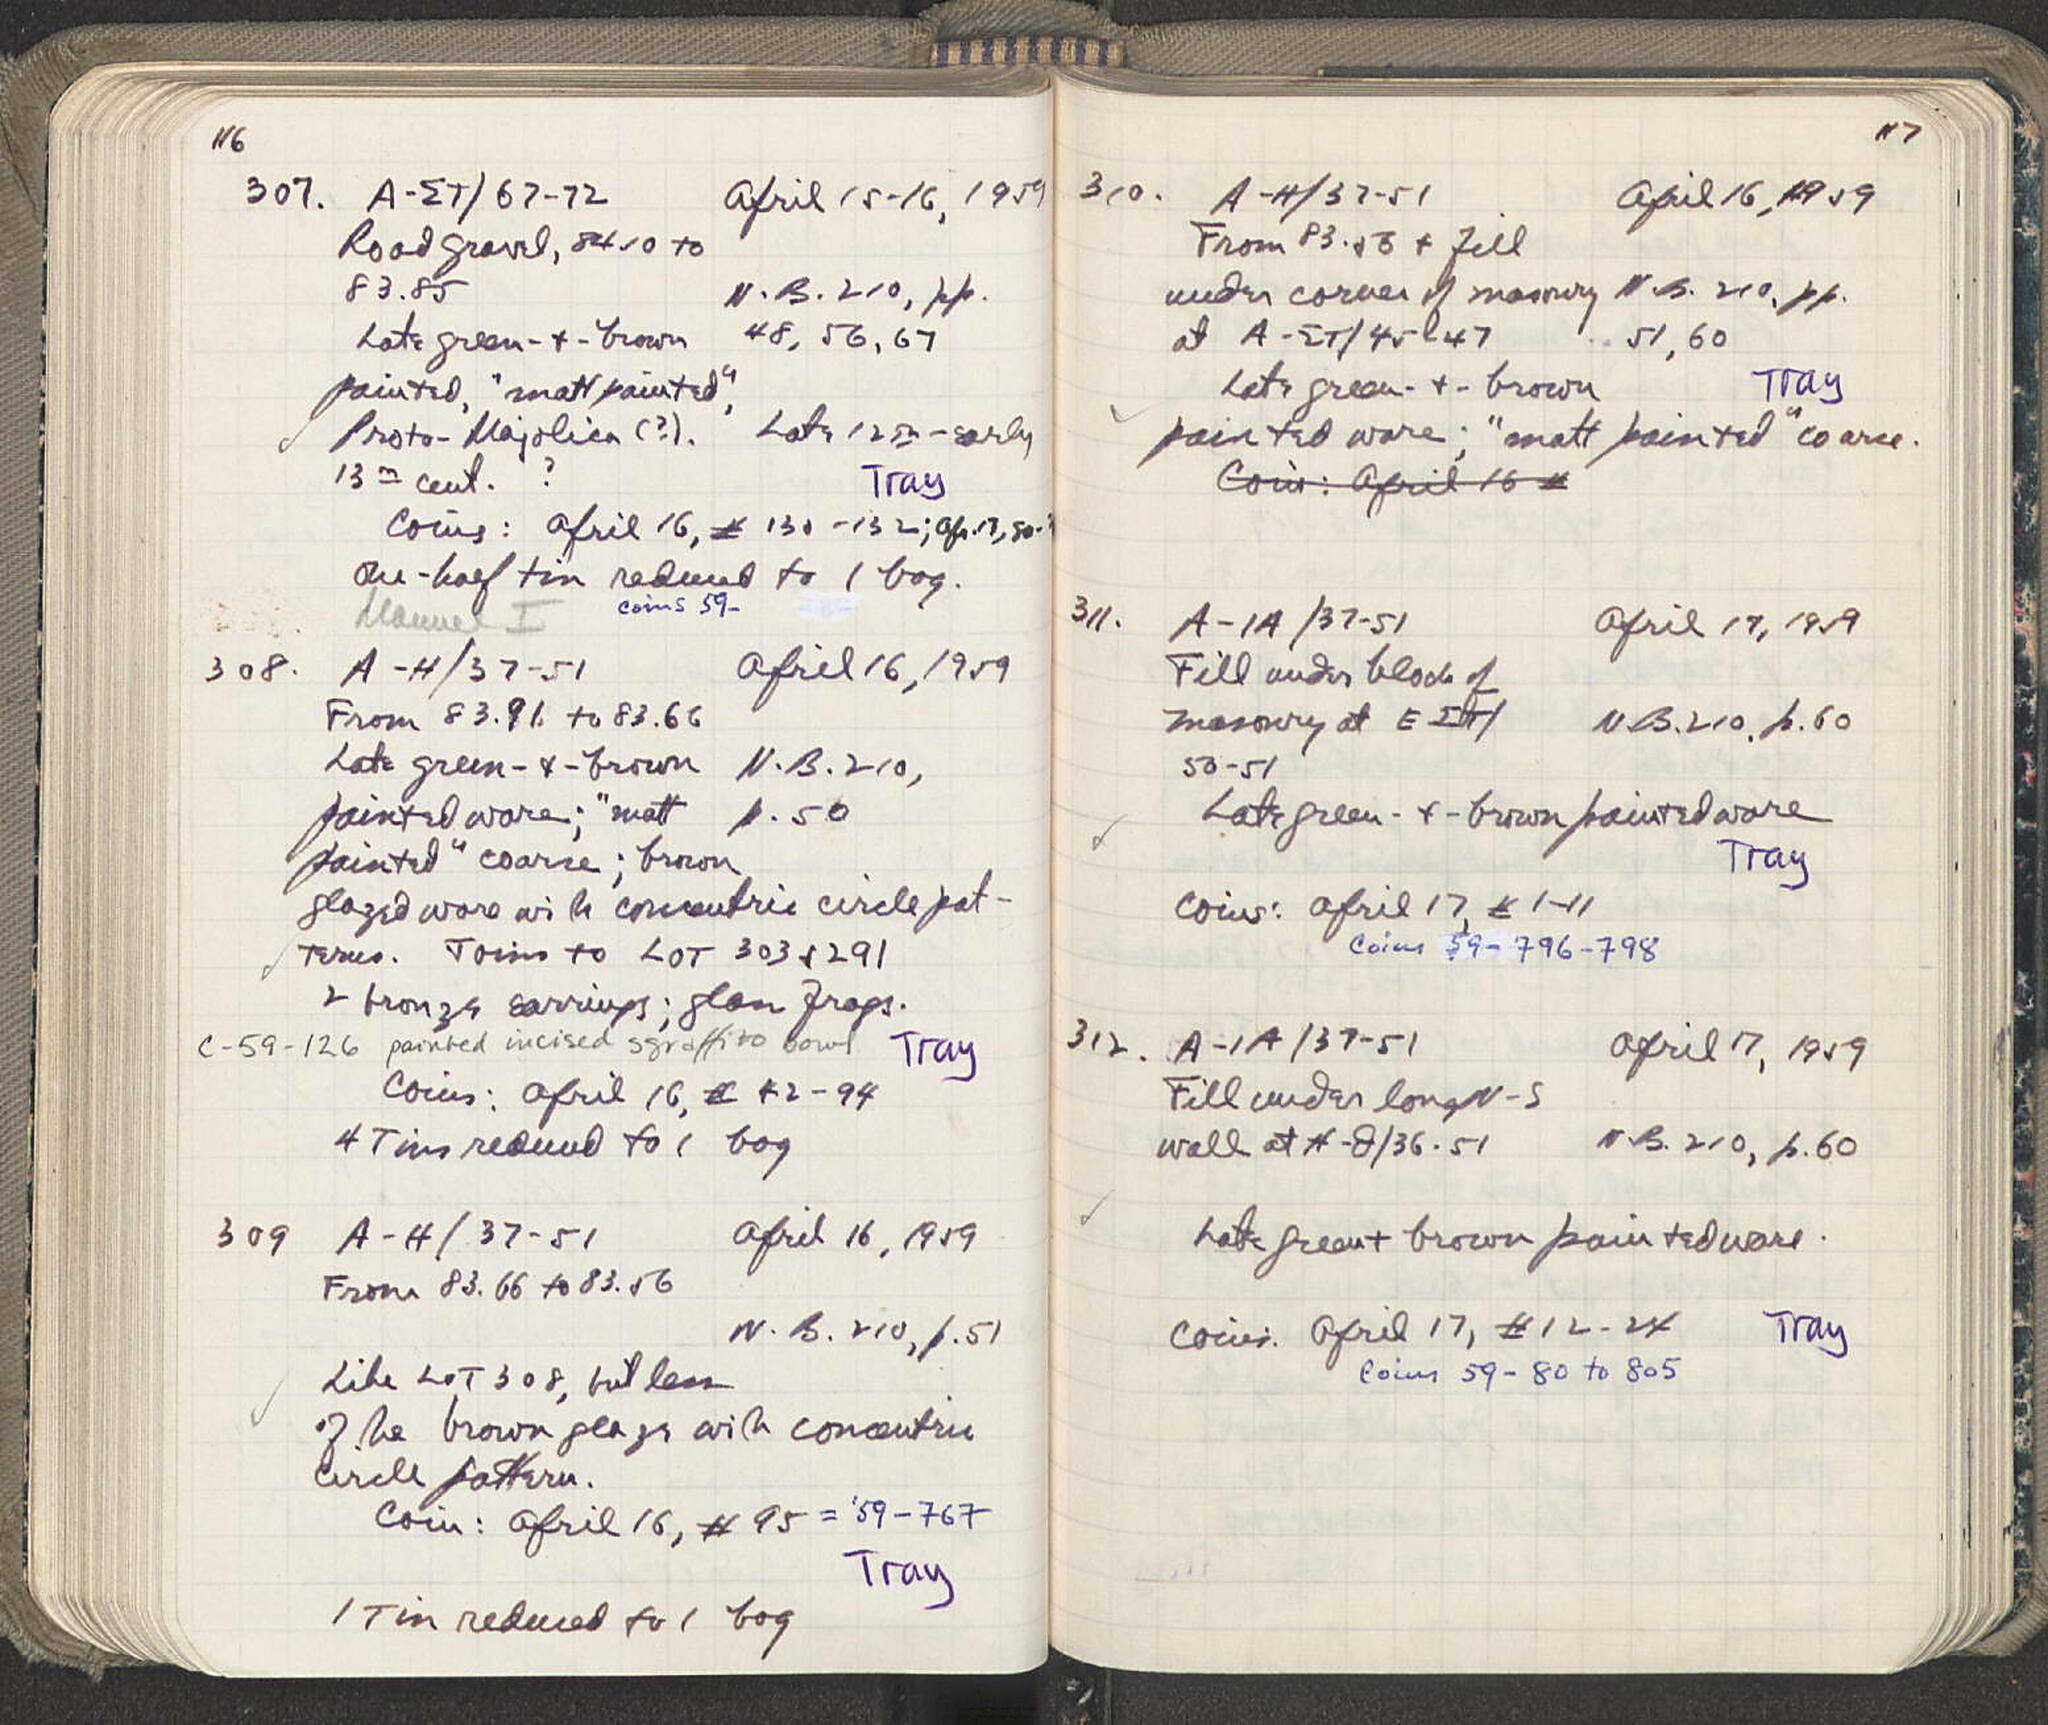 116
307. A-ΣΤ/67-72 April 15-16, 1959
Road gravel, 84.10 to
83.85 N.B. 210, pp.
Late green-+-brown 48, 56, 67
painted, "matt painted",
Proto-Majolica (?). Late 12th-early
13th cent. ? Tray
Coins: April 16, # 130-132; Apr. 17, 80-
One-half tin reduced to 1 bag.
Manuel I coins 59-
308. A-H/37-51 April 16, 1959
From 83.91 to 83.66
Late green-+-brown N.B. 210,
painted ware; "matt p. 50
painted" coarse; brown
glazed ware with concentric circle pat-
terns. Joins to LOT 303 & 291
2 bronze earrings; glass frags.
C-59-126 painted incised sgraffito bowl Tray
Coins: April 16, # 42-94
4 Tins reduced to 1 bag
309 A-H/37-51 April 16, 1959
From 83.66 to 83.56
N.B. 210, p. 51
Like LOT 308, but less
of the brown glaze with concentric
circle pattern.
Coin: April 16, # 95 = '59-767
Tray
1 Tin reduced to 1 bag
117
310. A-H/37-51 April 16, 1959
From 83.56 + fill
under corner of masonry N.B. 210, pp.
at A-ΣΤ/45-47 51, 60
Late green-+-brown Tray
painted ware; "matt painted" coarse.
Coin: April 16 #
311. A-IA/37-51 April 17, 1959
Fill under block of
masonry at E ΣΤ/ N.B. 210, p. 60
50-51
Late green-+-brown painted ware
Tray
Coins: April 17, # 1-11
Coins 59-796-798
312. A-IA/37-51 April 17, 1959
Fill under long N-S
wall at H-Θ/36-51 N.B. 210, p. 60
Late green + brown painted ware.
Coins. April 17, # 12-24 Tray
Coins 59-80 to 805